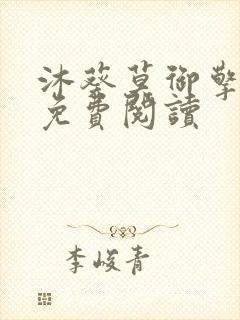 沐葵草御擎
免費閱讀
李峻青